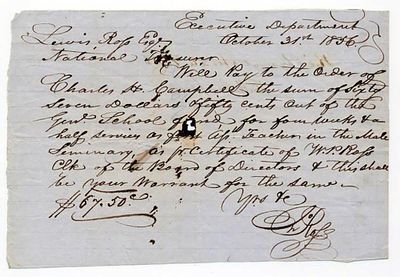 Executive Department
October 31st 1856.
Lewis Ross Esqr
National Treasurer
Will Pay to the Order of
Charles H. Campbell the sum of Sixty
Seven Dollars & fifty cents out of the
Genl School fund for four weeks & a
half service as first As. Teacher in the Male
Seminary as pr Certificate of W.P. Ross
Clk of the Board of Directors & this shall
be your Warrant for the same
$67.50c
Yrs &c
Jno Ross